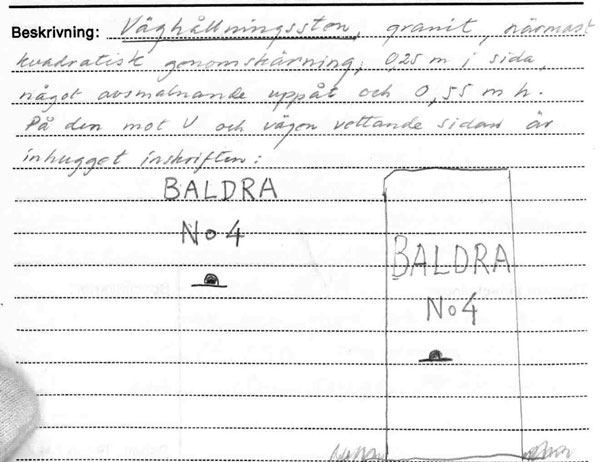 Beskrivning: Väghållningssten, granit, närmast
kvadratisk genomskärning, 0,25 m i sida,
något avsmalnande uppåt och 0,55 m h.
På den mot V och vägen vettande sidan är
inhugget inskriften:
BALDRA
No 4
BALDRA
No 4